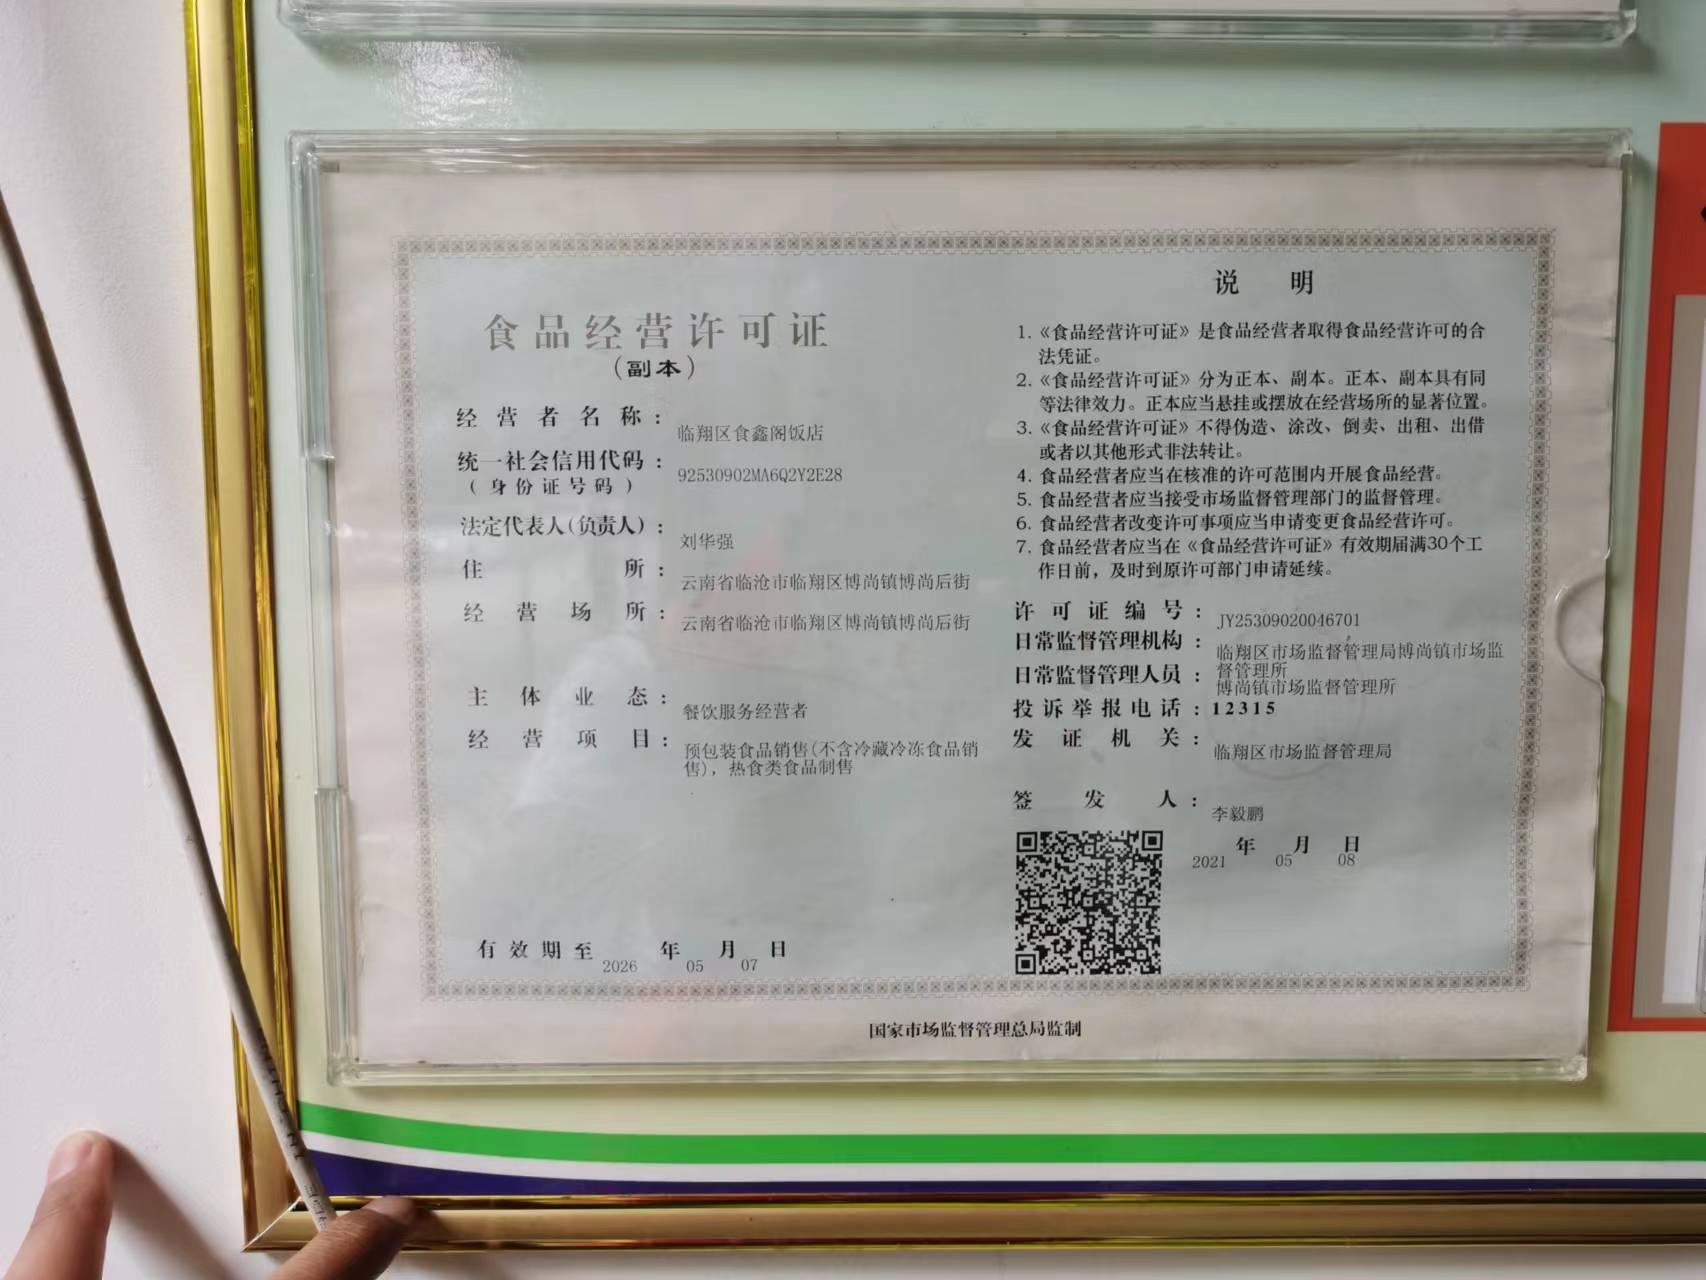 食品经营许可证
（副本）
经营者名称：临翔区食鑫阁饭店
统一社会信用代码：92530902MA6Q2Y2E28
（身份证号码）
法定代表人(负责人)：刘华强
住所：云南省临沧市临翔区博尚镇博尚后街
经营场所：云南省临沧市临翔区博尚镇博尚后街
主体业态：餐饮服务经营者
经营项目：预包装食品销售(不含冷藏冷冻食品销
售)，热食类食品制售
有效期至2026年05月07日
说明
1.《食品经营许可证》是食品经营者取得食品经营许可的合
法凭证。
2.《食品经营许可证》分为正本、副本。正本、副本具有同
等法律效力。正本应当悬挂或摆放在经营场所的显著位置。
3.《食品经营许可证》不得伪造、涂改、倒卖、出租、出借
或者以其他形式非法转让。
4. 食品经营者应当在核准的许可范围内开展食品经营。
5. 食品经营者应当接受市场监督管理部门的监督管理。
6. 食品经营者改变许可事项应当申请变更食品经营许可。
7. 食品经营者应当在《食品经营许可证》有效期届满30个工
作日前，及时到原许可部门申请延续。
许可证编号：JY25309020046701
日常监督管理机构：临翔区市场监督管理局博尚镇市场监
督管理所
日常监督管理人员：博尚镇市场监督管理所
投诉举报电话：12315
发证机关：临翔区市场监督管理局
签发人：李毅鹏
2021年05月08日
国家市场监督管理总局监制